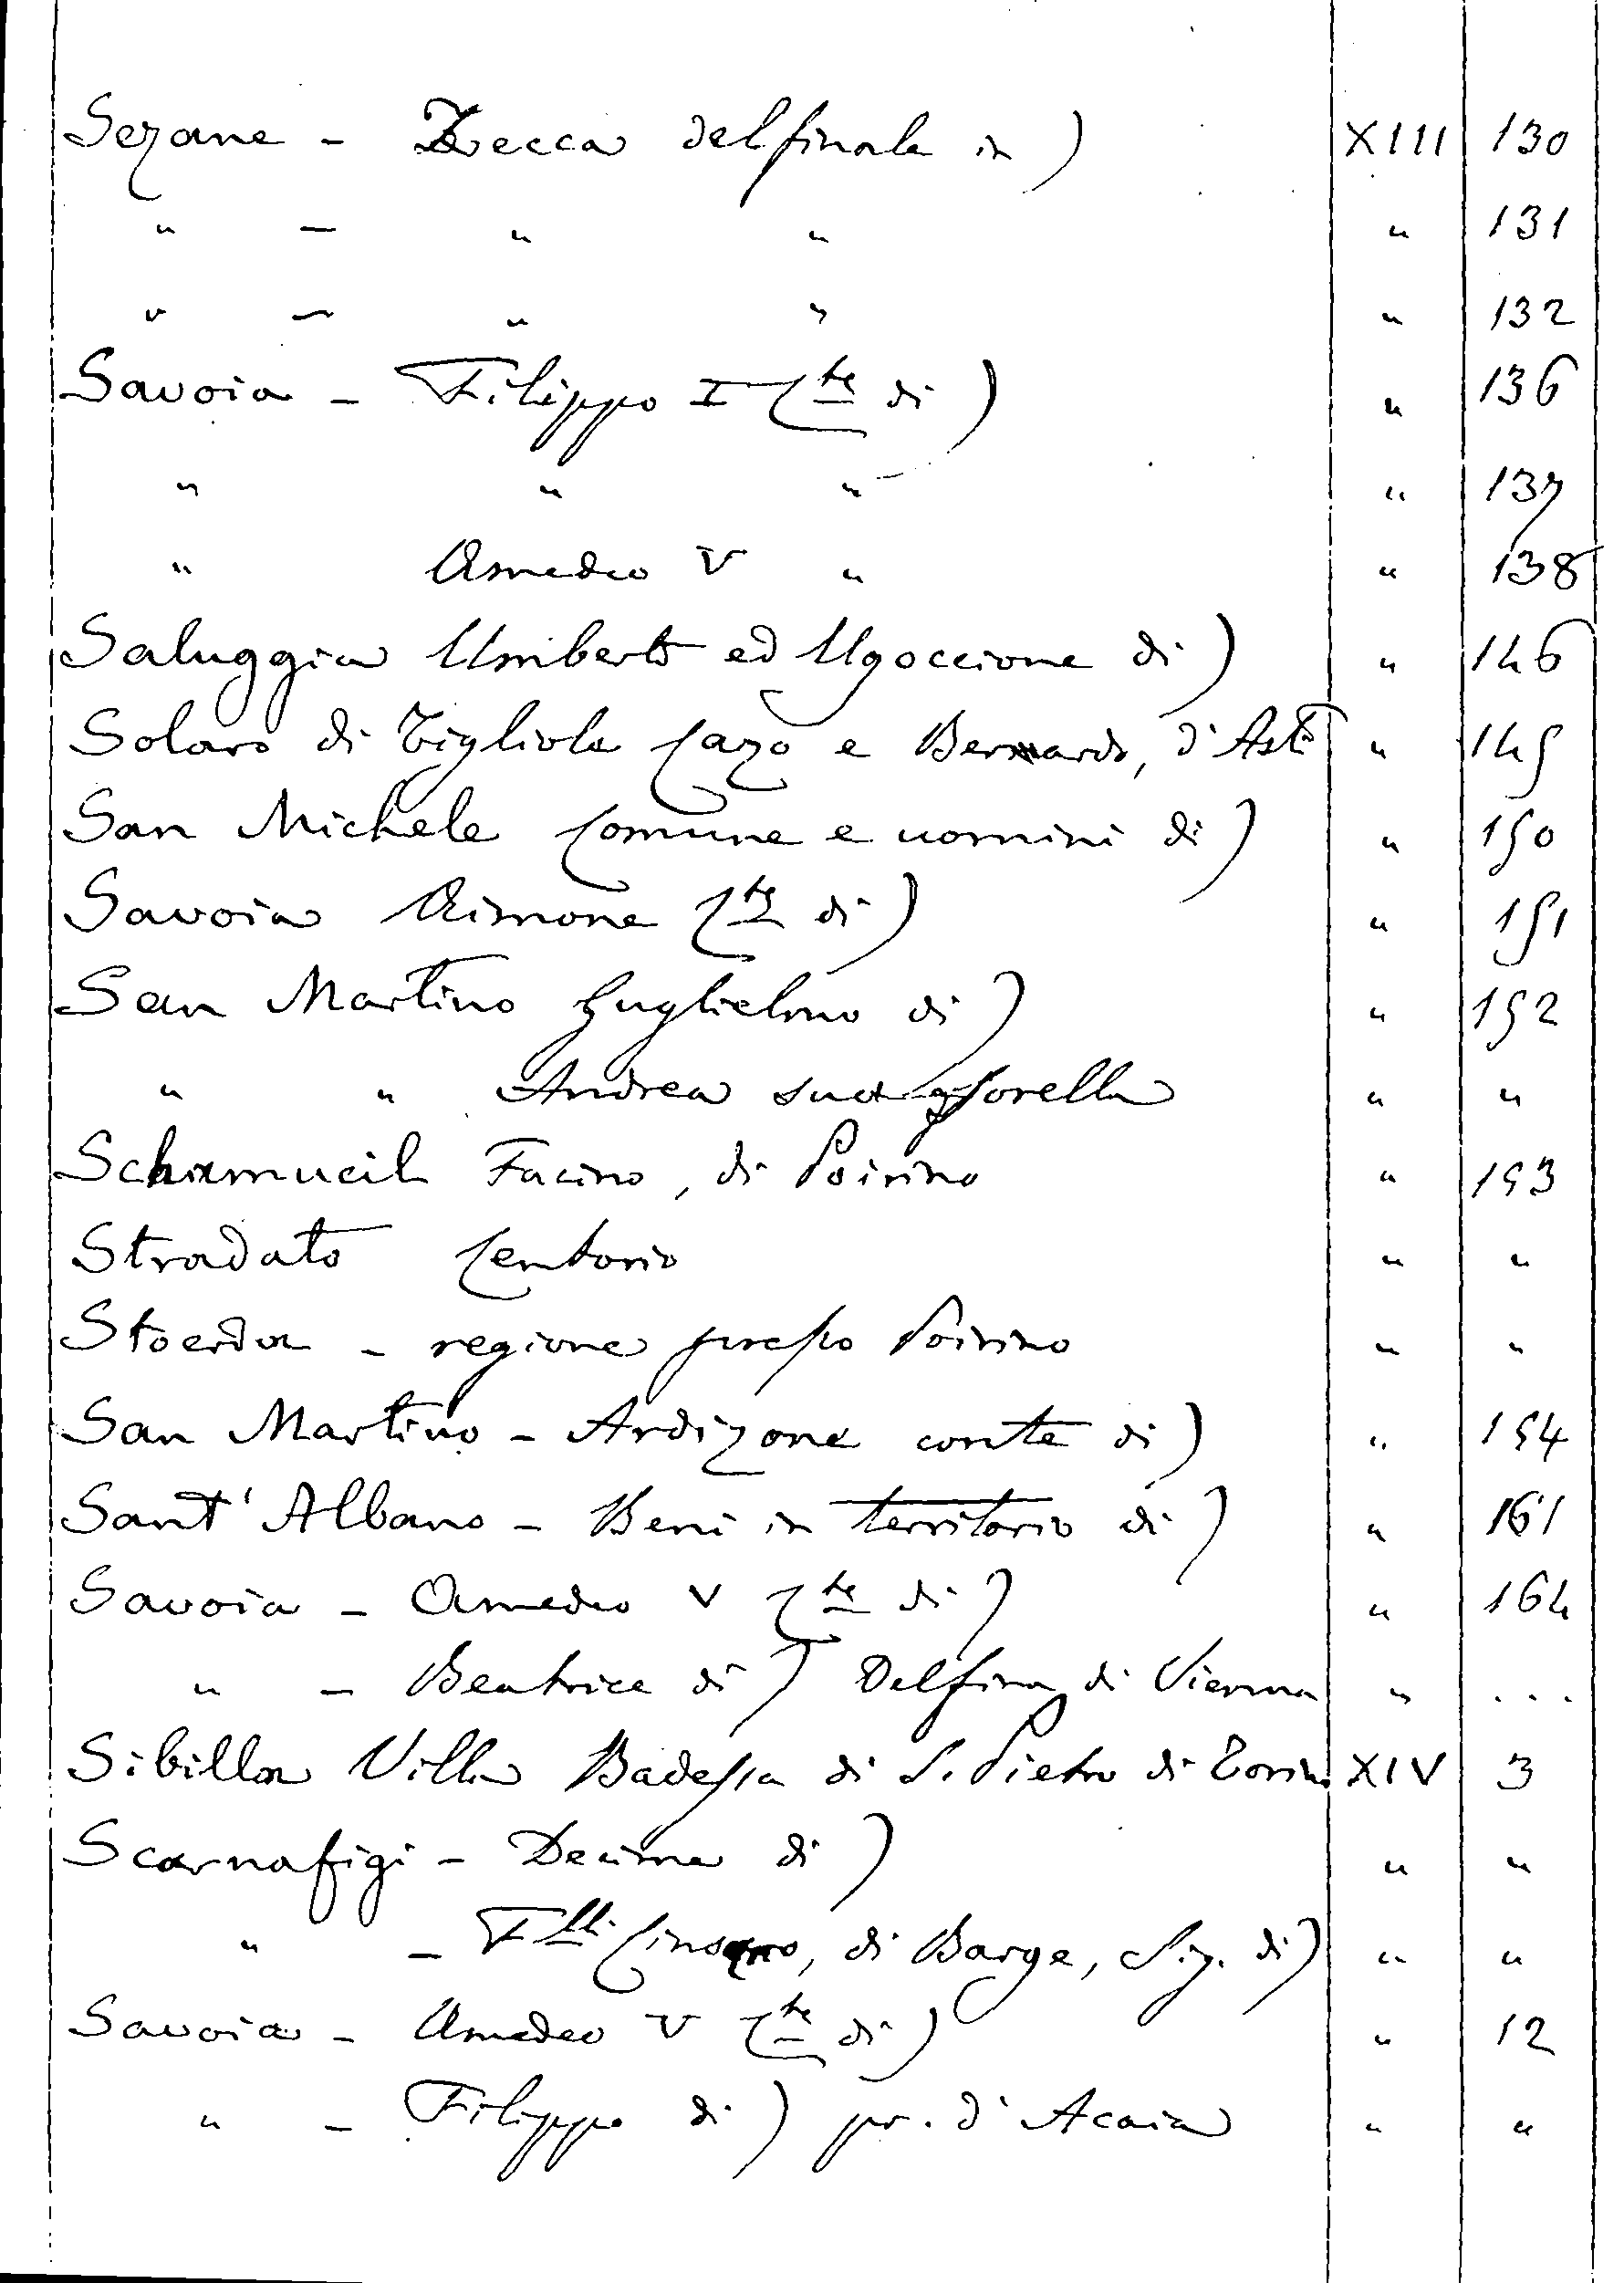 Sezane - Zecca delfinale in) XIII 130
" - " " " 131
" - " " " 132
Savoia - Filippo I Cte di) " 136
" " " " 137
" Amedeo V " " 138
Saluggia Umberto ed Ugoccione di) " 146
Solaro di Tigliole Cazo e Bernardo, d'Asti " 145
San Michele Comune e uomini di) " 150
Savoia Aimone Cte di) " 151
San Martino Guglielmo di) " 152
" " Andrea sua sorella " "
Schiamucil Facino, di Poirino " 153
Stradato Centorio " "
Stoerda - regione presso Poirino " "
San Martino - Ardizone conte di) " 154
Sant'Albano - Beni in territorio di) " 161
Savoia - Amedeo V Cte di) " 164
" - Beatrice di) Delfina di Vienna " ...
Sibilla Villa Badessa di S. Pietro di Torino XIV 3
Scarnafigi - Decima di) " "
" - Flli, di Barge, Sig. di) " "
Savoia - Amedeo V Cte di) " 12
" - Filippo di) pr. d'Acaia " "